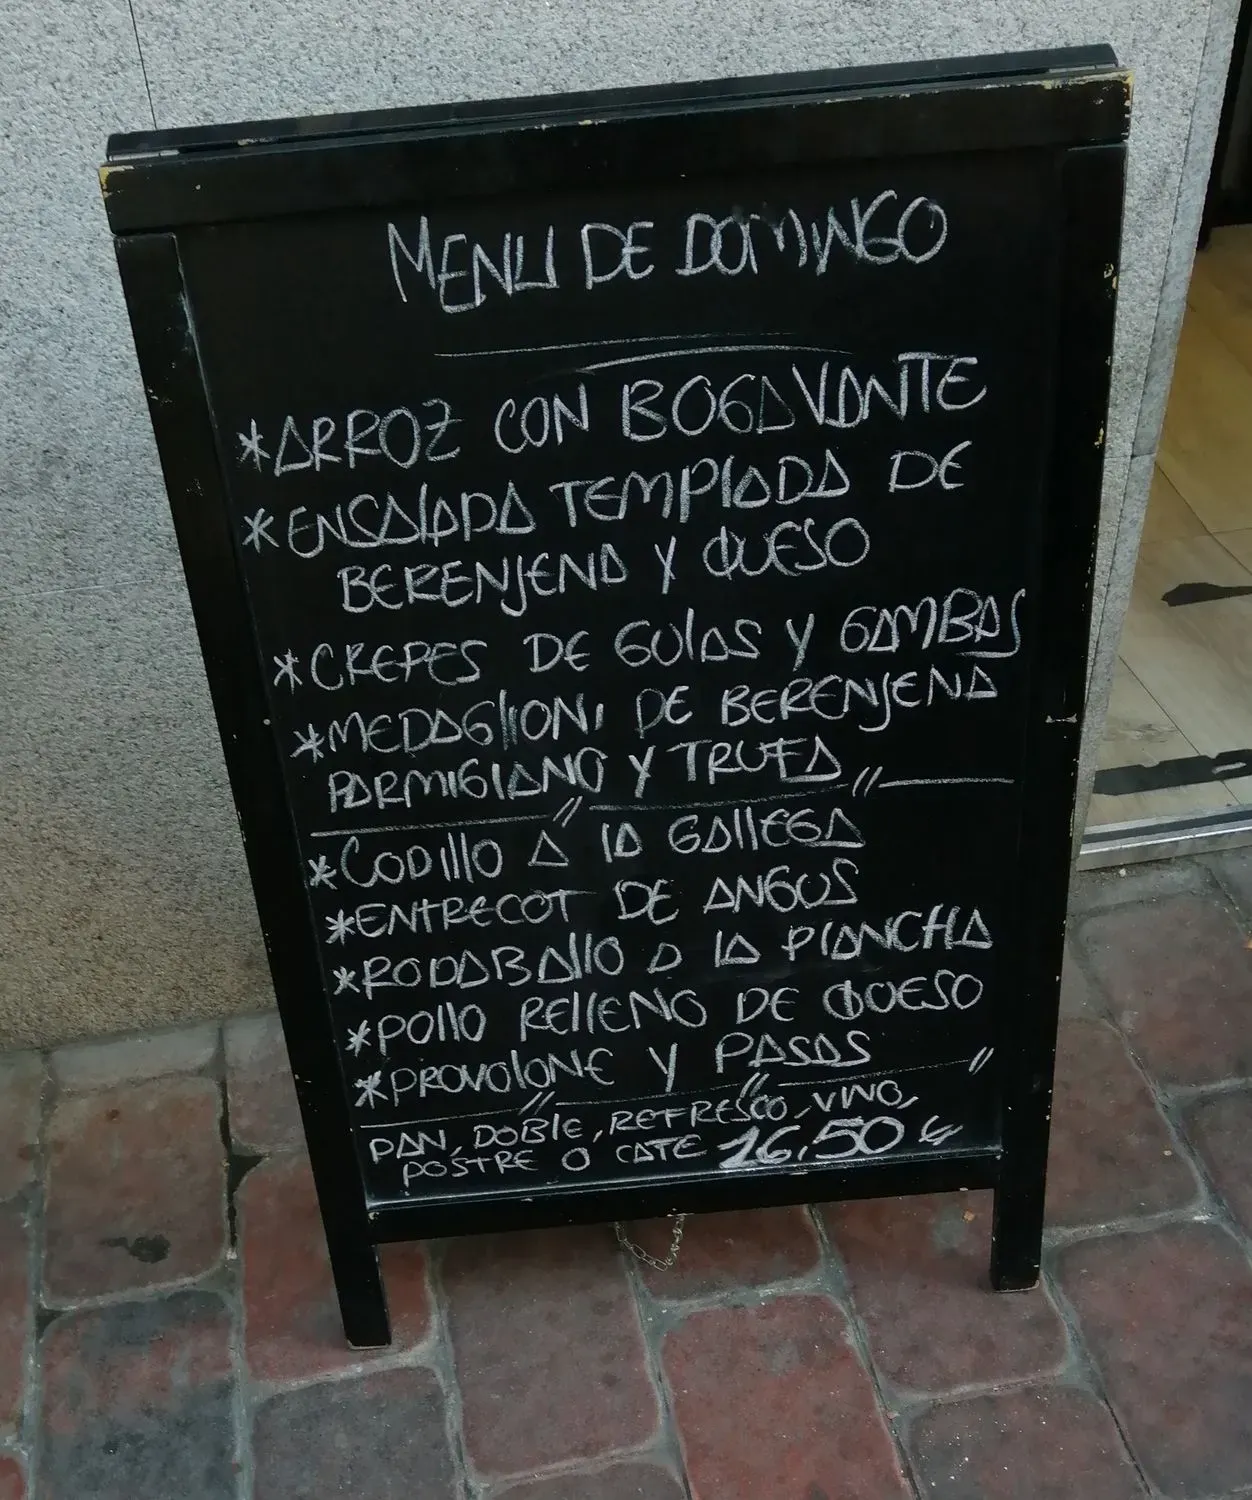 MENU DE DOMINGO
*ARROZ CON BOGAVANTE
*ENSALADA TEMPLADA DE
BERENJENA Y QUESO
*CREPES DE GULAS Y GAMBAS
*MEDAGLIONI DE BERENJENA
PARMIGIANO Y TRUFA //
*CODILLO A LA GALLEGA
*ENTRECOT DE ANGUS
*RODABALLO A LA PLANCHA
*POLLO RELLENO DE QUESO
*PROVOLONE Y PASAS //
PAN, DOBLE, REFRESCO, VINO,
POSTRE O CAFE 16,50 €